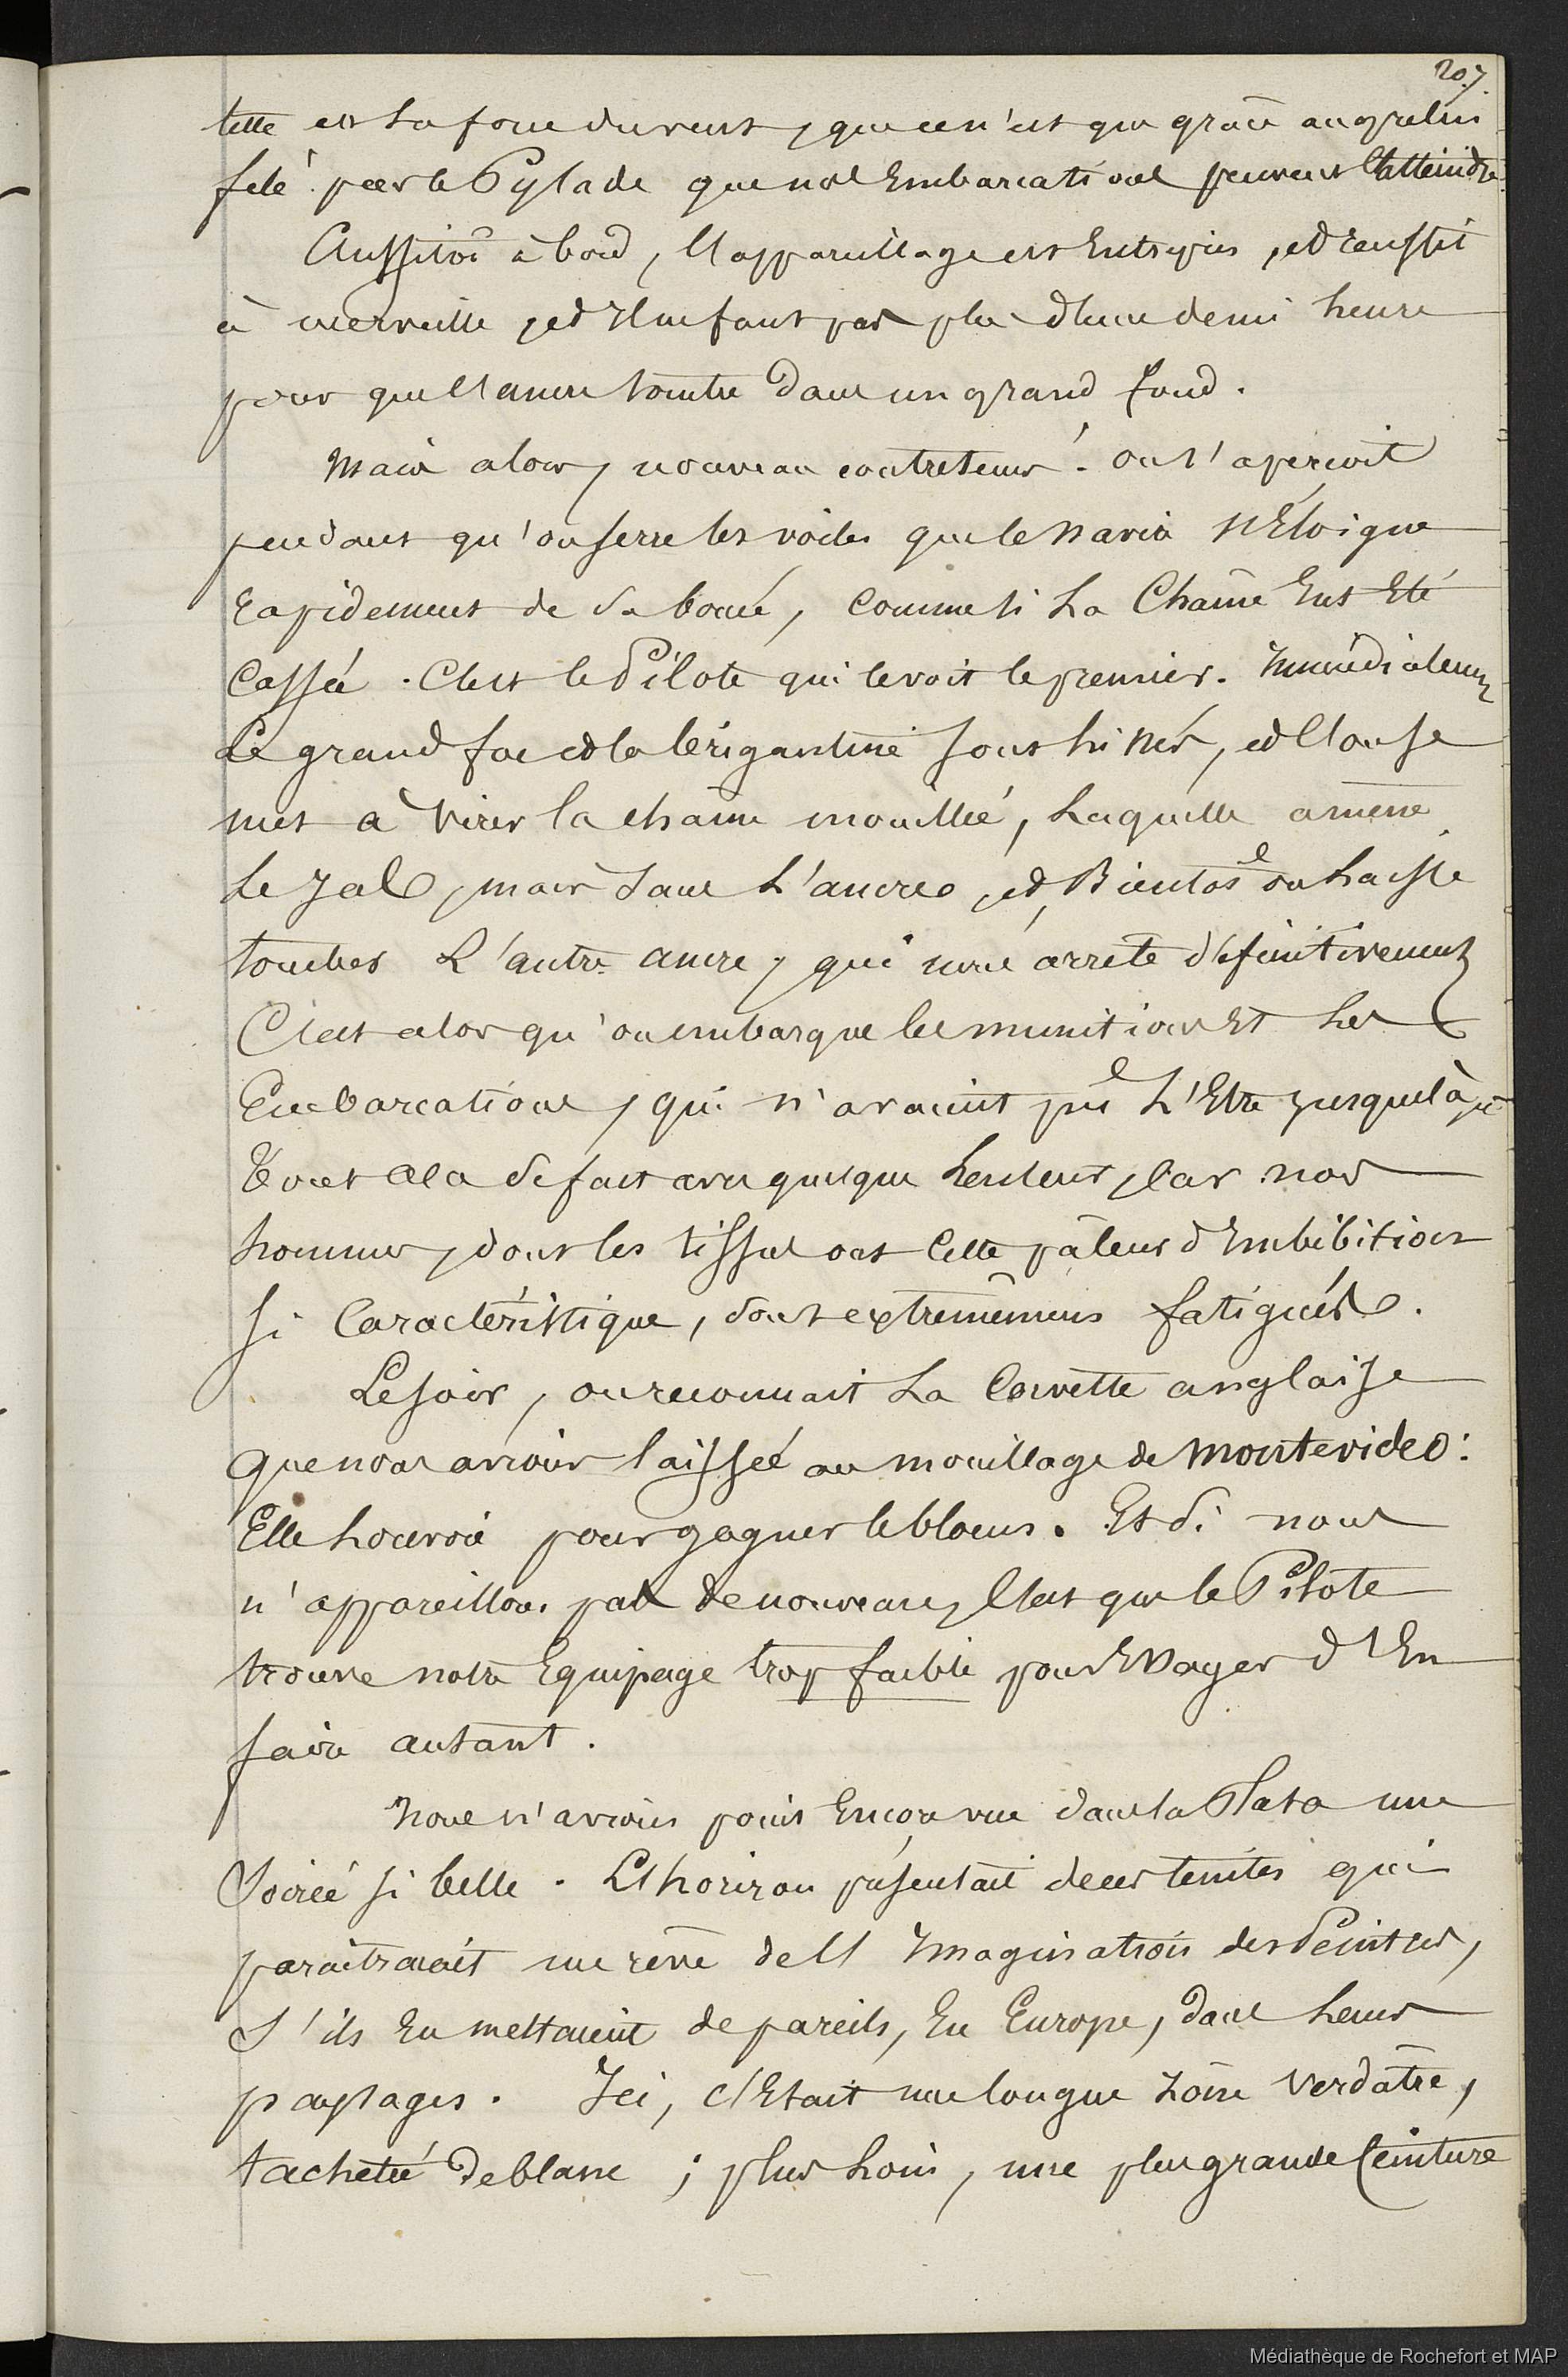 207.
telle est la force du vent, que ce n'est que grâce au grelin
filé par le Pylade que nos Embarcations peuvent l'atteindre.
Aussitôt à bord, l'appareillage est Entrepris, et reussit
à merveille, et Il ne faut pas plus d'une demi heure
pour que l'ancre tombe dans un grand fond.
Mais alors, nouveau contretems. on s'aperçoit
pendant qu'on serre les voiles que le Navire s'Eloigne
rapidement de sa bouée, comme si la Chaîne Eut Eté
Cassée. C'est le Pilote qui le voit le premier. Immédiatement
Le grand foc et la brigantine sont hissés, et l'on se
met à virer la chaîne mouillée, laquelle amène
le jal, mais sans l'ancre, et Bientôt on laisse
tomber L'autre ancre, qui nous arrête définitivement
C'est alors qu'on embarque les munitions Et les
Embarcations, qui n'avaient pu L'Etre jusque là, et
Tout cela se fait avec quelque lenteur, car nos
hommes, dont les tissus ont cette pâleur d'Imbibition
si Caractéristique, sont extrêmement fatigués.
Le soir, on reconnait la Corvette anglaise
que nous avions laissée au mouillage de Montevideo:
Elle louvoie pour gagner le blocus. Et si nous
n'appareillons pas de nouveau, C'est que le Pilote
trouve notre Equipage trop faible pour Essayer d'En
faire autant.
Nous n'avions point Encore vu dans la Plata une
Soirée si belle. L'horizon présentait de ces teintes qui
paraitraient un rêve de l'Imagination des Peintres,
S'ils En mettaient de pareils, En Europe, dans leurs
paysages. Ici, c'Etait une longue zône verdâtre,
tachetée de blanc; plus loin, une plus grande Ceinture
Médiathèque de Rochefort et MAP